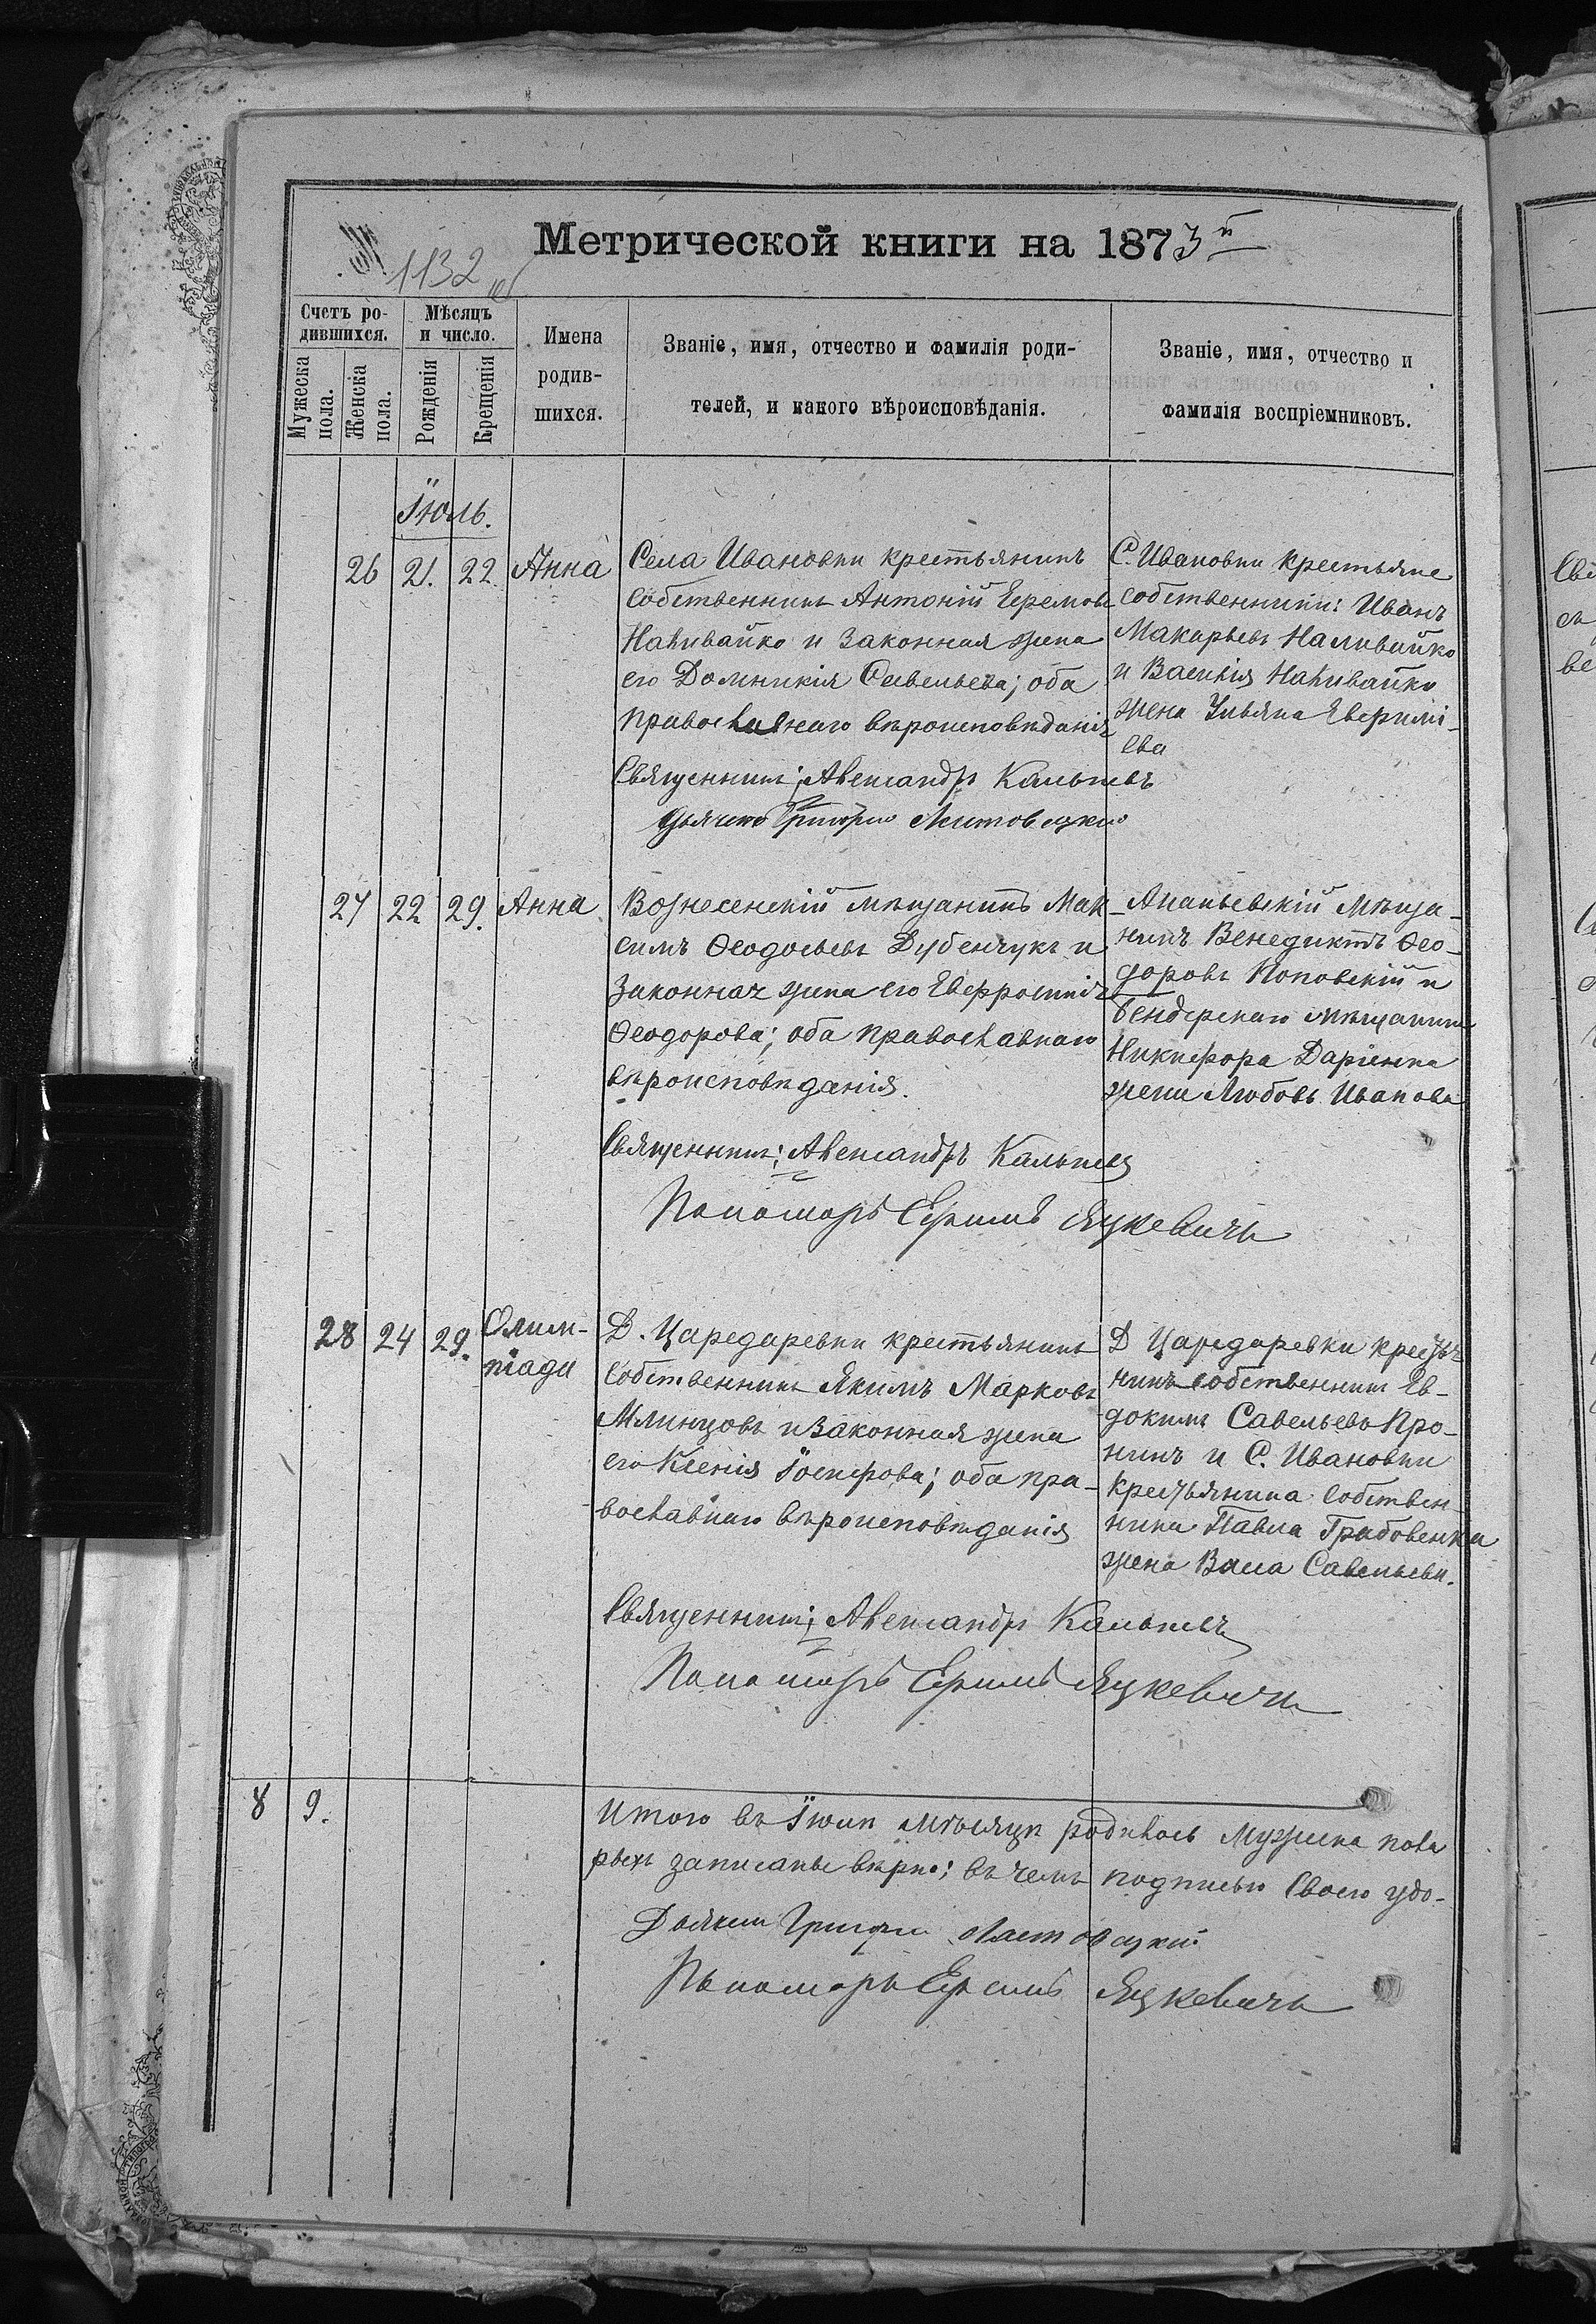 Метрической книги на 1873й
№ 1132
Счетъ родившихся.
Мужеска пола.
Женска пола.
Мѣсяцъ и число.
Рожденія
Крещенія
Имена родившихся.
Званіе, имя, отчество и фамилія роди-
телей, и какого вѣроисповѣданія.
Званіе, имя, отчество и
фамилія воспріемниковъ.
Іюль.
26 21. 22. Анна
Села Ивановки крестьянинъ
собственникъ Антоній Еремовъ
Наливайко и законная жена
его Домникія Савельева; оба
православнаго вѣроисповѣданія
С. Ивановки крестьяне
собственники: Иванъ
Макарьевъ Наливайко
и Василія Наливайко
жена Ульяна Евфимі-
ева
Священникъ; Александръ Кальневъ
Дьячекъ Григорій
27 22 29. Анна
Вознесенскій мѣщанинъ Мак-
симъ Ѳеодосьевъ Дубенчукъ и
законная жена его Евфросинія
Ѳеодорова; оба православнаго
вѣроисповѣданія.
Ананьевскій мѣща-
нинъ Венедиктъ Ѳео-
доровъ Поповскій и
Бендерскаго мѣщанина
Никифора Даріенка
жена Любовь Иванова
Священникъ; Александръ Кальневъ
Пономарь Ефимъ Яцкевичъ
28 24 29. Олим-
піада
Д. Царедаревки крестьянинъ
собственникъ Якимъ Марковъ
Млинцовъ и законная жена
его Ксенія Іосифова; оба пра-
вославнаго вѣроисповѣданія
Д Царедаревки крестья
нинъ собственникъ Ев-
докимъ Савельевъ Про-
нинъ и С. Ивановки
крестьянина собствен
ника Павла Грабовенка
жена Васа Савельева.
Священникъ; Александръ Кальневъ
Пономарь Ефимъ Яцкевичъ
8 9.
Итого въ Іюлѣ мѣсяцѣ родилось мужеска пола
рыхъ записаны вѣрно; въ чемъ подписью своею удо-
Дьячекъ Григорій
Пономарь Ефимъ Яцкевичъ